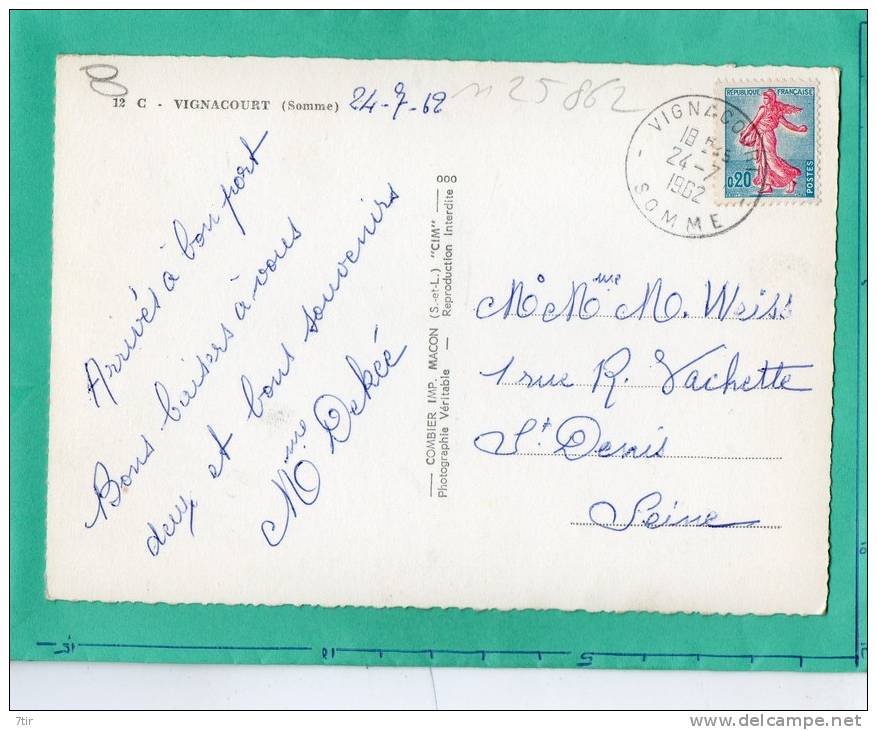 12 C - VIGNACOURT (Somme) 24-7-62
n 25862
Arrivés à bon port
Bons baisers à vous
deux et bons souvenirs
Mme Dekéé
COMBIER IMP. MACON (S.-et-L.) "CIM"
Photographie Véritable — Reproduction Interdite
000
VIGNACOURT
18 H
24-7
1962
SOMME
RÉPUBLIQUE FRANÇAISE
0,20
POSTES
M Mme M. Weiss
1 rue R. Vachette
St Denis
Seine
15
10
5
7tir
www.delcampe.net